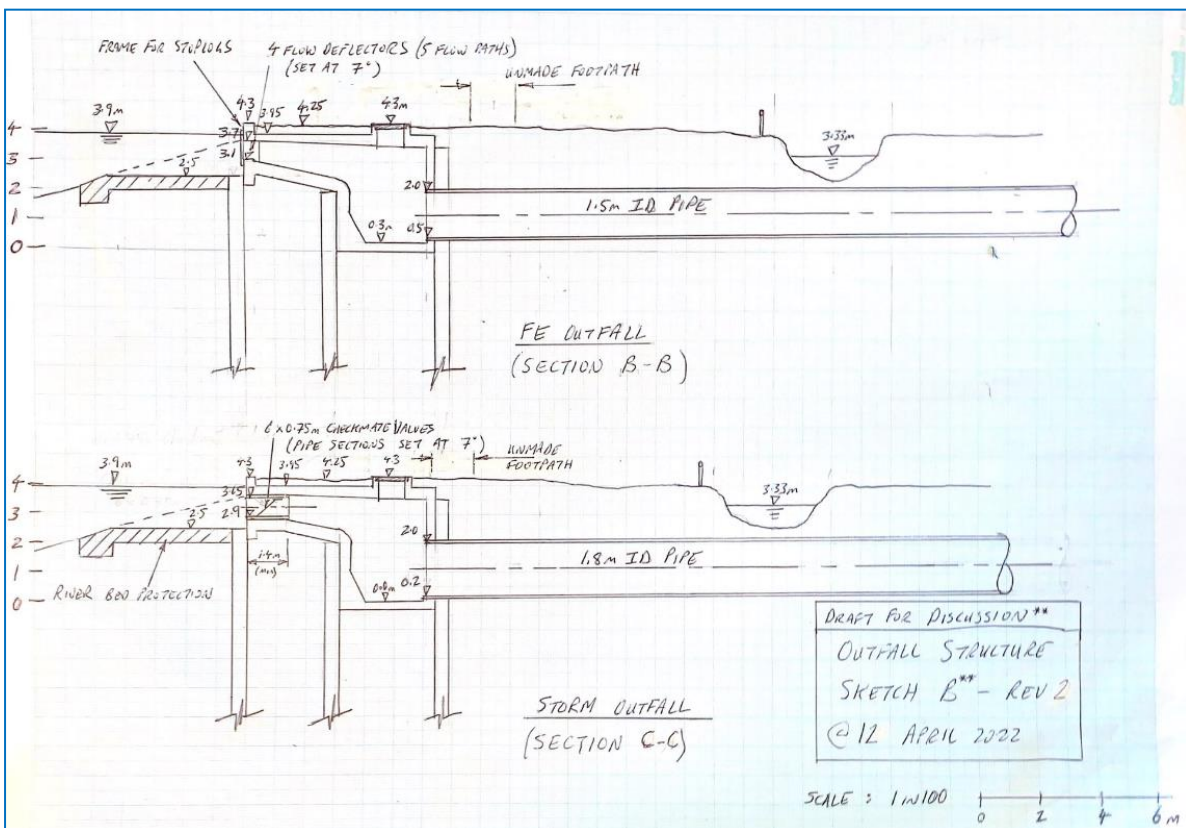 FRAME FOR STOPLOGS
4 FLOW DEFLECTORS (5 FLOW PATHS)
(SET AT 7°)
UNMADE FOOTPATH
3.9m
4.3
3.95
4.25
4.3m
3.7
3.1
2.5
3.33m
4
3
2
1
0
2.0
0.3m
0.5
1.5m ID PIPE
FE OUTFALL
(SECTION B-B)
6 x 0.75m CHECKMATE VALVES
(PIPE SECTIONS SET AT 7°)
UNMADE
FOOTPATH
3.9m
4.3
3.95
4.25
4.3
3.65
2.9
2.5
3.33m
4
3
2
1
0
1.4m
(MIN)
2.0
0.0m
0.2
1.8m ID PIPE
RIVER BED PROTECTION
STORM OUTFALL
(SECTION C-C)
DRAFT FOR DISCUSSION**
OUTFALL STRUCTURE
SKETCH B** - REV 2
@ 12 APRIL 2022
SCALE : 1 IN 100
0 2 4 6 m